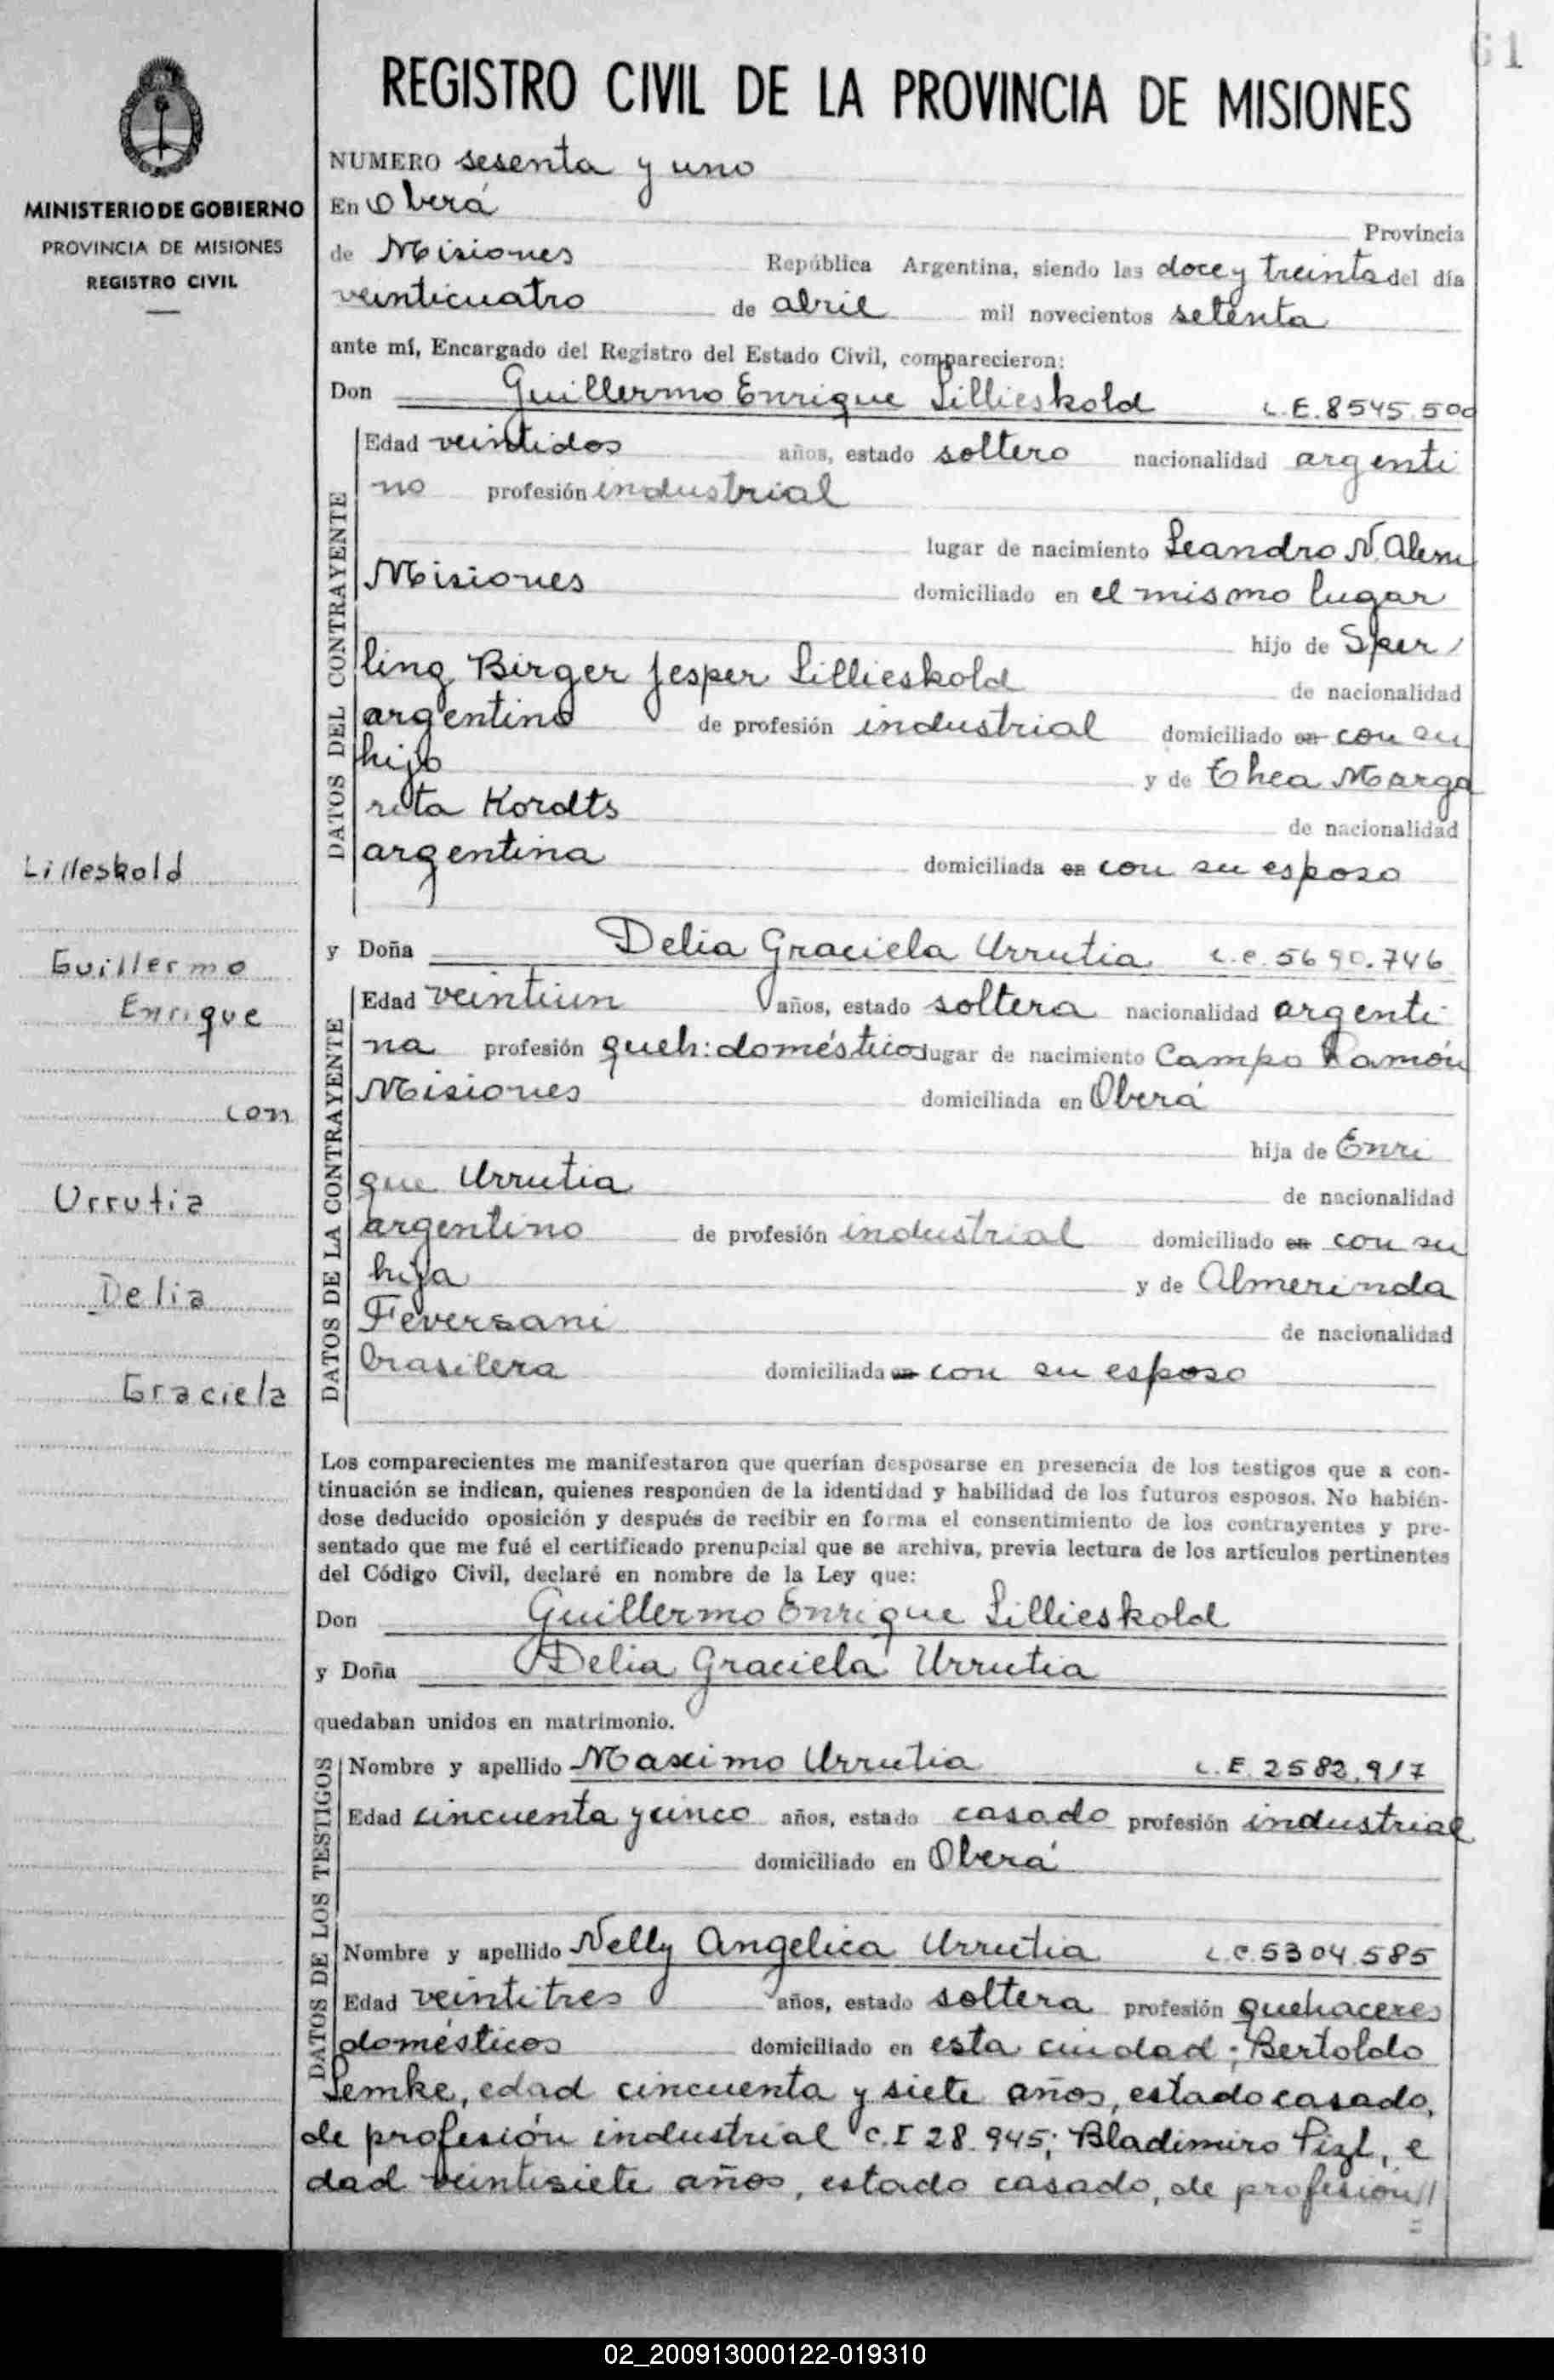 61
REGISTRO CIVIL DE LA PROVINCIA DE MISIONES
MINISTERIO DE GOBIERNO
PROVINCIA DE MISIONES
REGISTRO CIVIL
NUMERO sesenta y uno
En Oberá Provincia
de Misiones República Argentina, siendo las doce y treinta del día
veinticuatro de abril mil novecientos setenta
ante mí, Encargado del Registro del Estado Civil, comparecieron:
Don Guillermo Enrique Lillieskold L.E. 8545.500
DATOS DEL CONTRAYENTE
Edad veintidos años, estado soltero nacionalidad argenti
no profesión industrial
lugar de nacimiento Leandro N. Alem
Misiones domiciliado en el mismo lugar
hijo de Sper
ling Birger Jesper Lillieskold de nacionalidad
argentino de profesión industrial domiciliado en con su
hijo y de Thea Marga
rita Kordts de nacionalidad
argentina domiciliada en con su esposo
Lilleskold
Guillermo
Enrique
con
Urrutia
Delia
Graciela
y Doña Delia Graciela Urrutia L.C. 5690.746
DATOS DE LA CONTRAYENTE
Edad veintiun años, estado soltera nacionalidad argenti
na profesión queh: domésticos lugar de nacimiento Campo Ramón
Misiones domiciliada en Oberá
hija de Enri
que Urrutia de nacionalidad
argentino de profesión industrial domiciliado en con su
hija y de Almerinda
Feversani de nacionalidad
brasilera domiciliada en con su esposo
Los comparecientes me manifestaron que querían desposarse en presencia de los testigos que a con-
tinuación se indican, quienes responden de la identidad y habilidad de los futuros esposos. No habién-
dose deducido oposición y después de recibir en forma el consentimiento de los contrayentes y pre-
sentado que me fué el certificado prenupcial que se archiva, previa lectura de los artículos pertinentes
del Código Civil, declaré en nombre de la Ley que:
Don Guillermo Enrique Lillieskold
y Doña Delia Graciela Urrutia
quedaban unidos en matrimonio.
DATOS DE LOS TESTIGOS
Nombre y apellido Maximo Urrutia L.E. 2582.917
Edad cincuenta y cinco años, estado casado profesión industrial
domiciliado en Oberá
Nombre y apellido Nelly Angelica Urrutia L.C. 5304.585
Edad veintitres años, estado soltera profesión quehaceres
domésticos domiciliado en esta ciudad; Bertoldo
Lemke, edad cincuenta y siete años, estado casado,
de profesión industrial C.I 28.945; Bladimiro Pizl, e
dad veintisiete años, estado casado, de profesión//
02_200913000122-019310